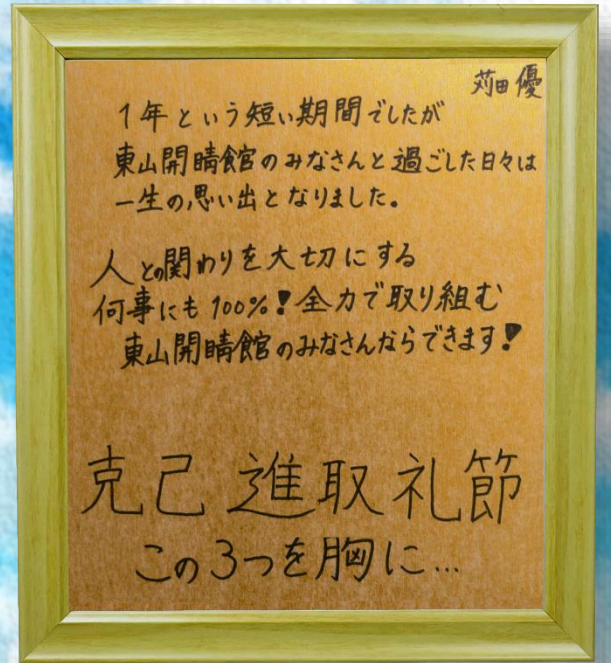 苅田優
1年という短い期間でしたが
東山開睛館のみなさんと過ごした日々は
一生の思い出となりました。
人との関わりを大切にする
何事にも100%！全力で取り組む
東山開睛館のみなさんならできます！
克己 進取 礼節
この3つを胸に…